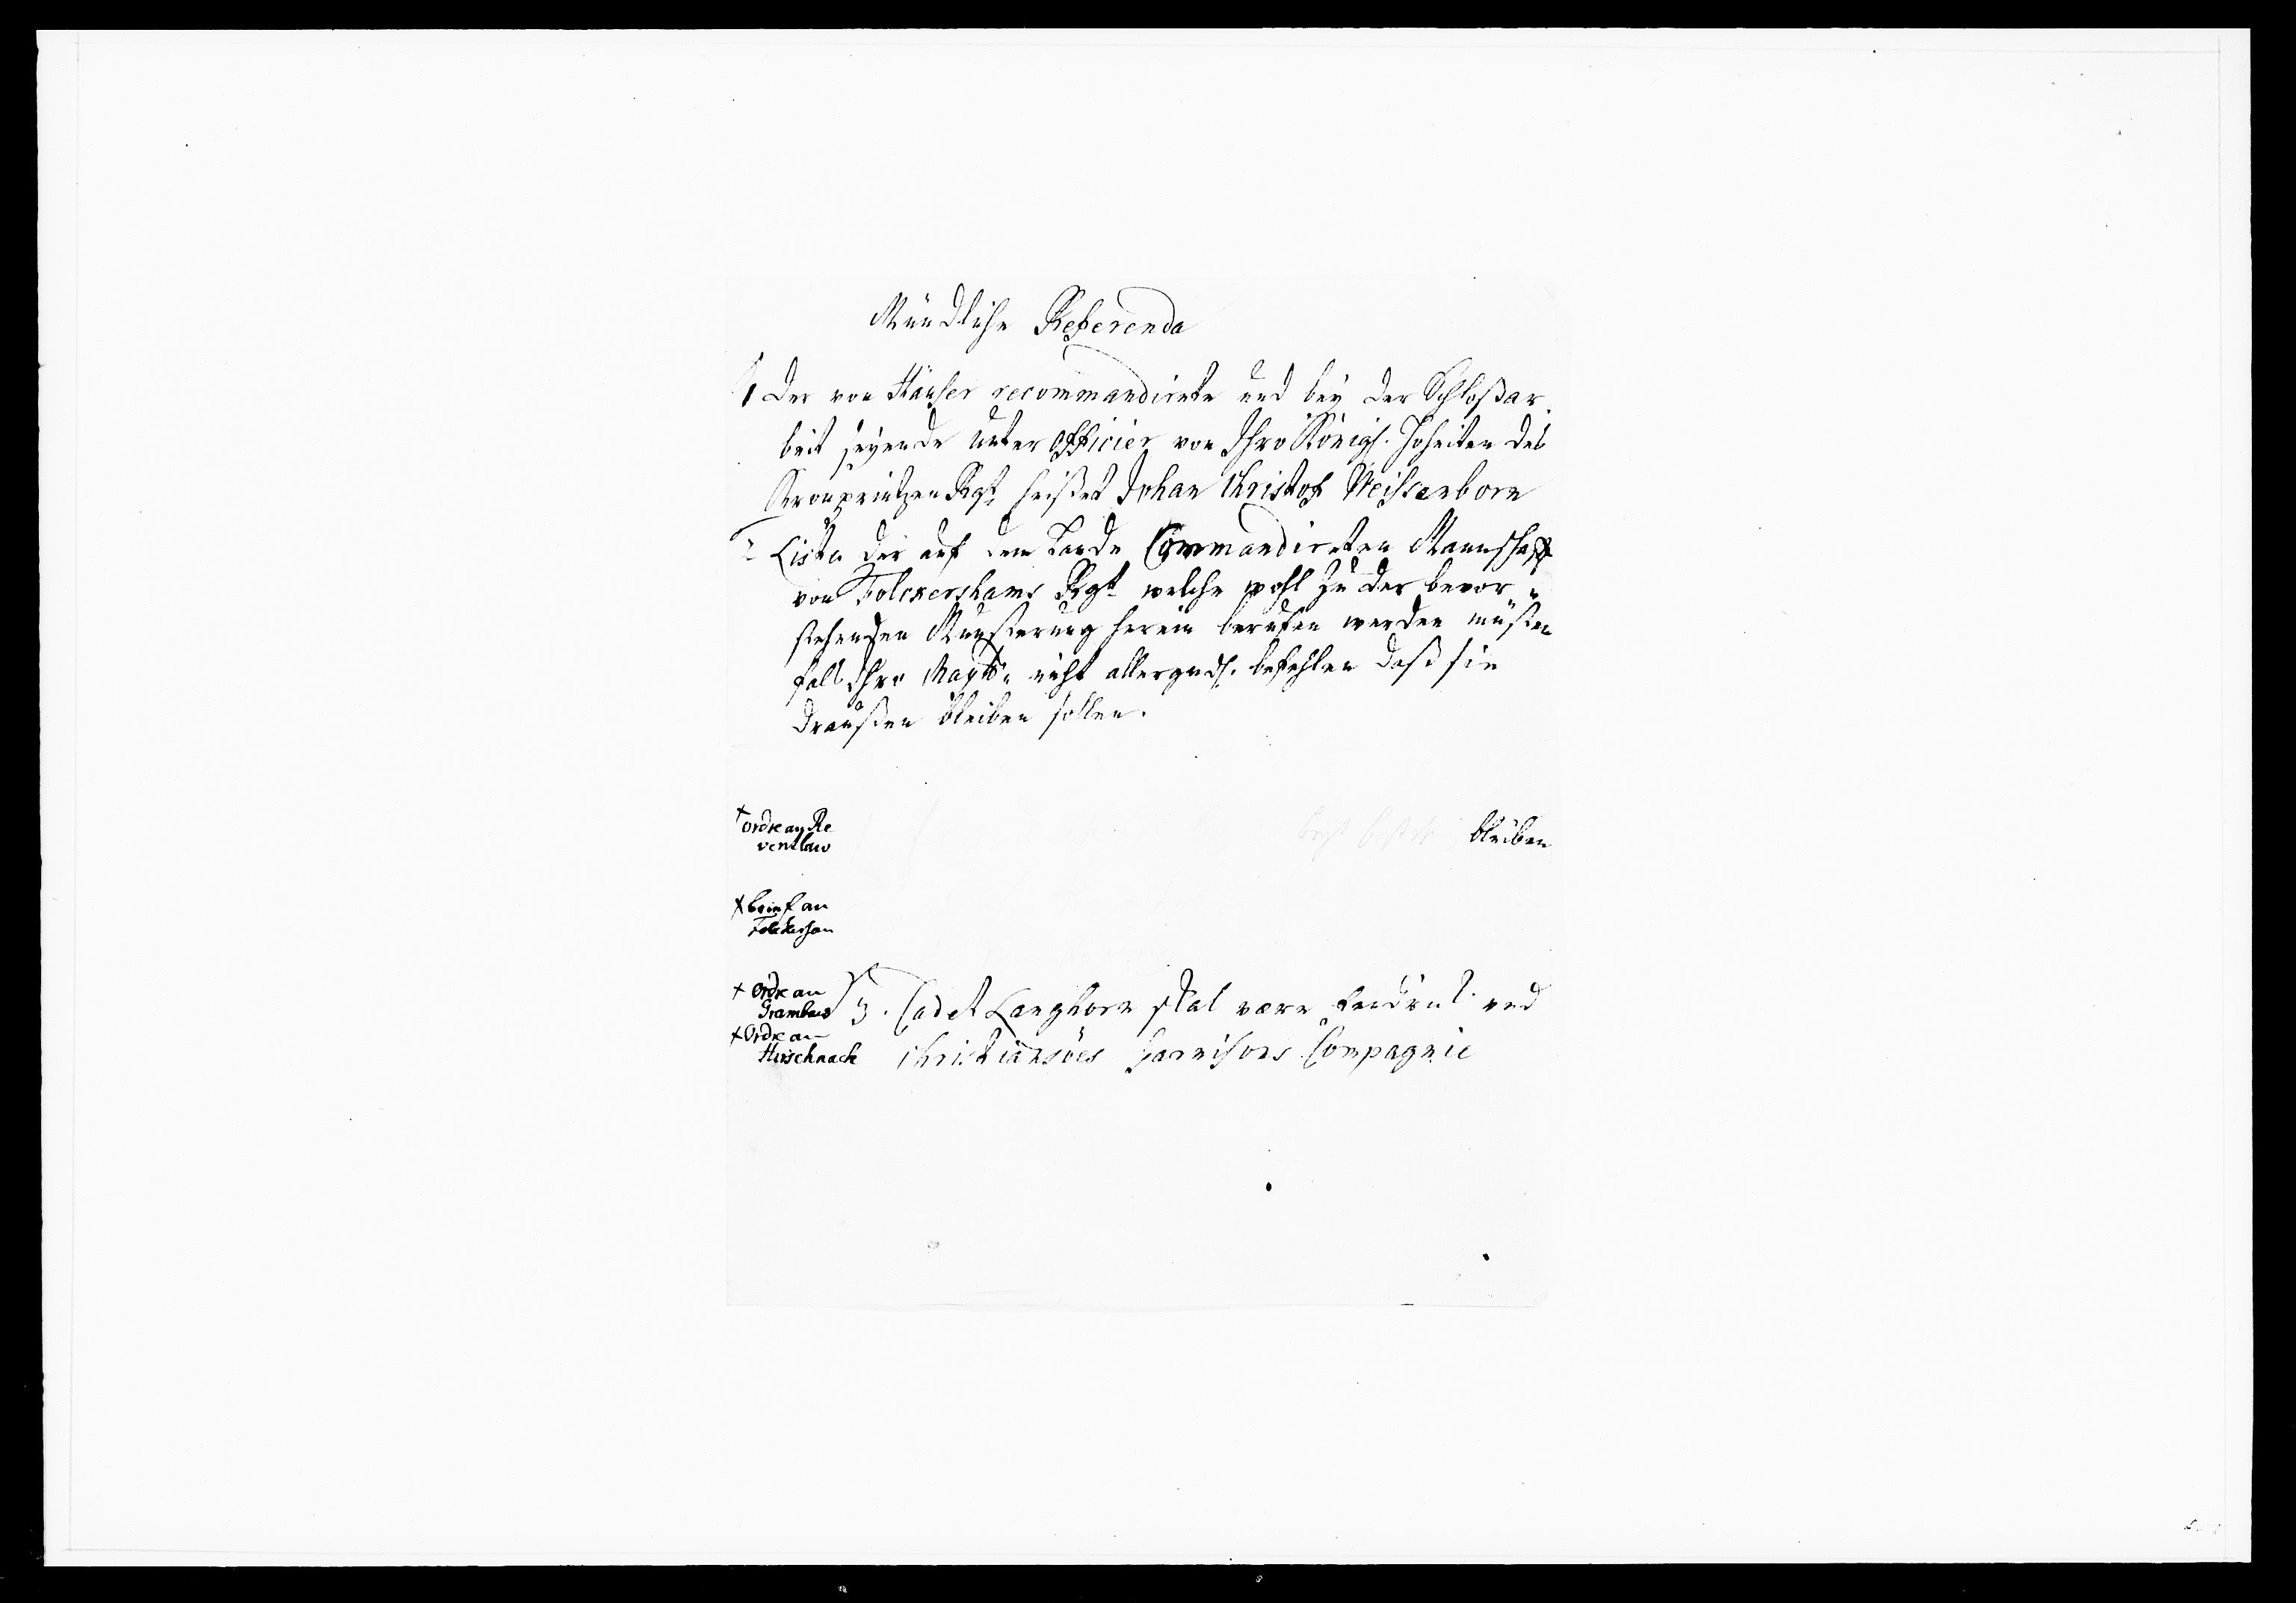 Mündliche Referenda
1 Der von Häusser recommandirte und bey der Schloßar„
beit seyende unter Officier von Ihro Königl. Hoheiten des
Kronprintzen Rgt. heißet Johan Christof Weissenborn
2 Lista der auf dem Lande Commandireten Mannschafft
von Folckershams Rgt welche wohl zu der bevor„
stehenden Munsterung herein beruffen werden müßen
fals Ihro Maytt„ nicht allergndl. befehlen daß sie
draußen bleiben sollen.
+ ordre an Re
ventlau
bleiben
+ brief an
Folckersham
+ Ordre an
Grambow
3. Cadet Langhorn skal være fendrich ved
+ Ordre an
Hirschnach
Christiansöes Garnisons Compagnie